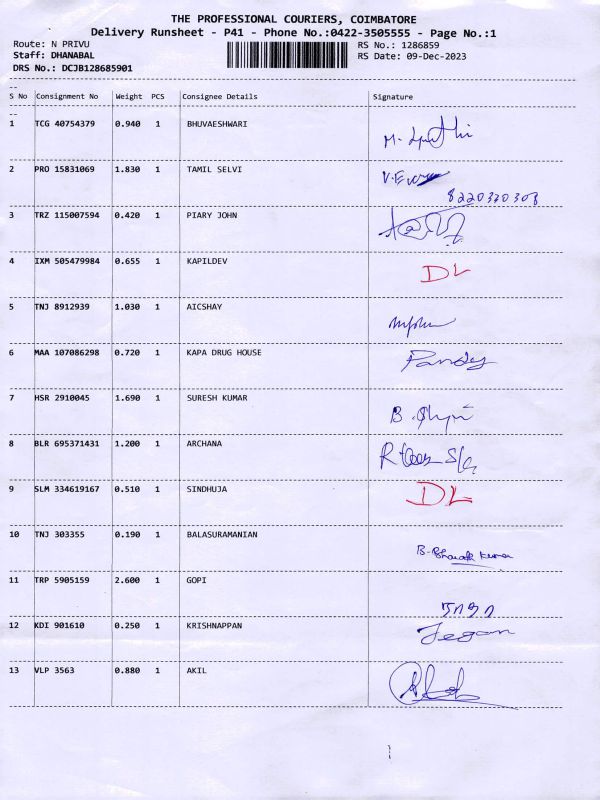 THE PROFESSIONAL COURIERS, COIMBATORE
Delivery Runsheet - P41 - Phone No.:0422-3505555 - Page No.:1
Route: N PRIVU RS No.: 1286859
Staff: DHANABAL RS Date: 09-Dec-2023
DRS No.: DCJB128685901
S No Consignment No Weight PCS Consignee Details Signature
1 TCG 40754379 0.940 1 BHUVAESHWARI
2 PRO 15831069 1.830 1 TAMIL SELVI
8220320308
3 TRZ 115007594 0.420 1 PIARY JOHN
4 IXM 505479984 0.655 1 KAPILDEV DL
5 TNJ 8912939 1.030 1 AICSHAY
6 MAA 107086298 0.720 1 KAPA DRUG HOUSE Pandey
7 HSR 2910045 1.690 1 SURESH KUMAR
8 BLR 695371431 1.200 1 ARCHANA
9 SLM 334619167 0.510 1 SINDHUJA DL
10 TNJ 303355 0.190 1 BALASURAMANIAN B-Bharath Kumar
11 TRP 5905159 2.600 1 GOPI
12 KDI 901610 0.250 1 KRISHNAPPAN Jegan
13 VLP 3563 0.880 1 AKIL